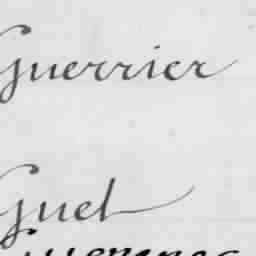 Guerrier
Guet